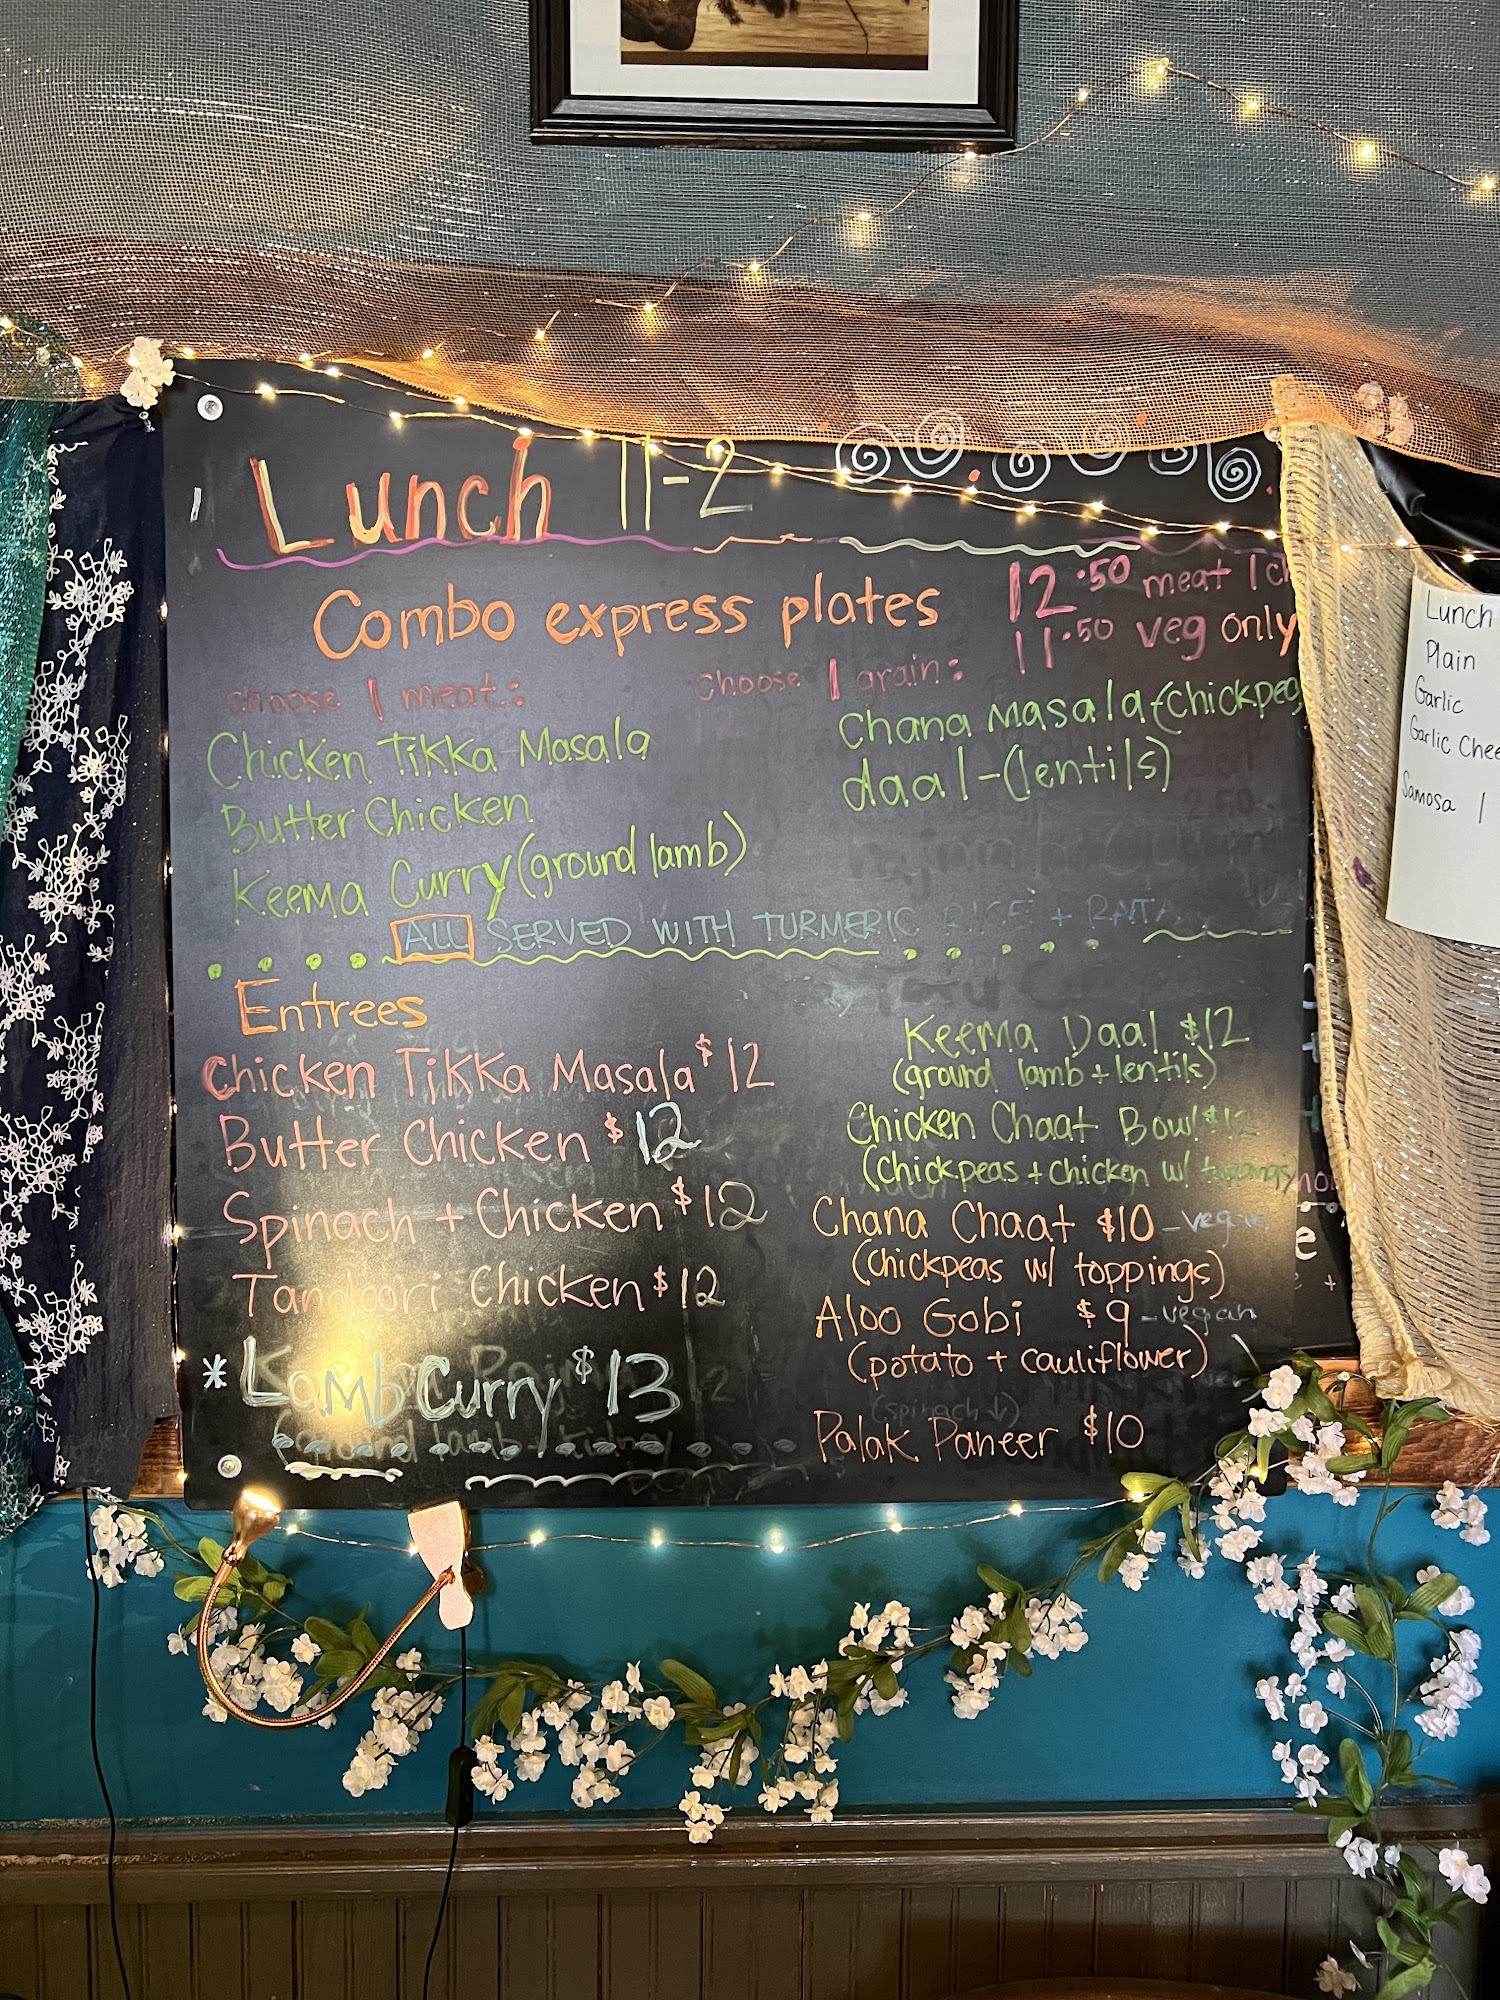 Lunch 11-2
Combo express plates
12.50 meat
11.50 veg only
choose 1 meat:
choose 1 grain:
Chicken Tikka Masala
Butter Chicken
Keema Curry (ground lamb)
Chana Masala-(chickpeas
daal-(lentils)
ALL SERVED WITH TURMERIC RICE + RAITA
Entrees
Chicken Tikka Masala $12
Butter Chicken $12
Spinach + Chicken $12
Tandoori Chicken $12
* Lamb Curry $13
Keema Daal $12
(ground lamb + lentils)
Chicken Chaat Bowl $12
(chickpeas + chicken w/ toppings)
Chana Chaat $10 - vegan
(chickpeas w/ toppings)
Aloo Gobi $9 - vegan
(potato + cauliflower)
(spinach ↓)
Palak Paneer $10
Lunch
Plain
Garlic
Garlic Chee
Samosa 1